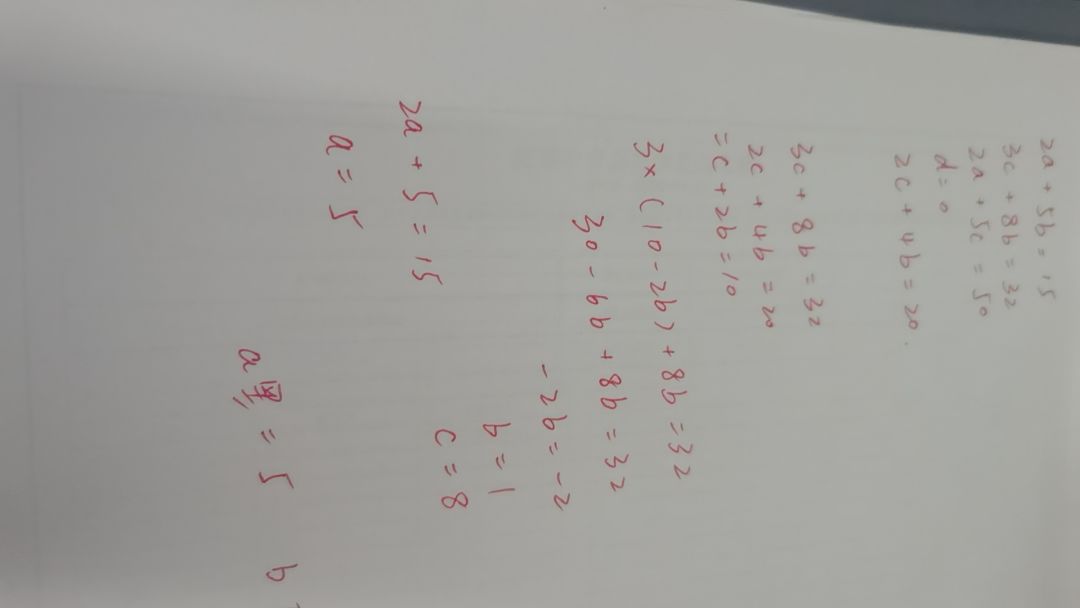 2a + 5b = 15
3c + 8b = 32
2a + 5c = 50
d = 0
2c + 4b = 20.
3c + 8b = 32
2c + 4b = 20
= c + 2b = 10
3× (10 - 2b) + 8b = 32
30 - 6b + 8b = 32
- 2b = - 2
b = 1
c = 8
2a + 5 = 15
a = 5
a = 5 b